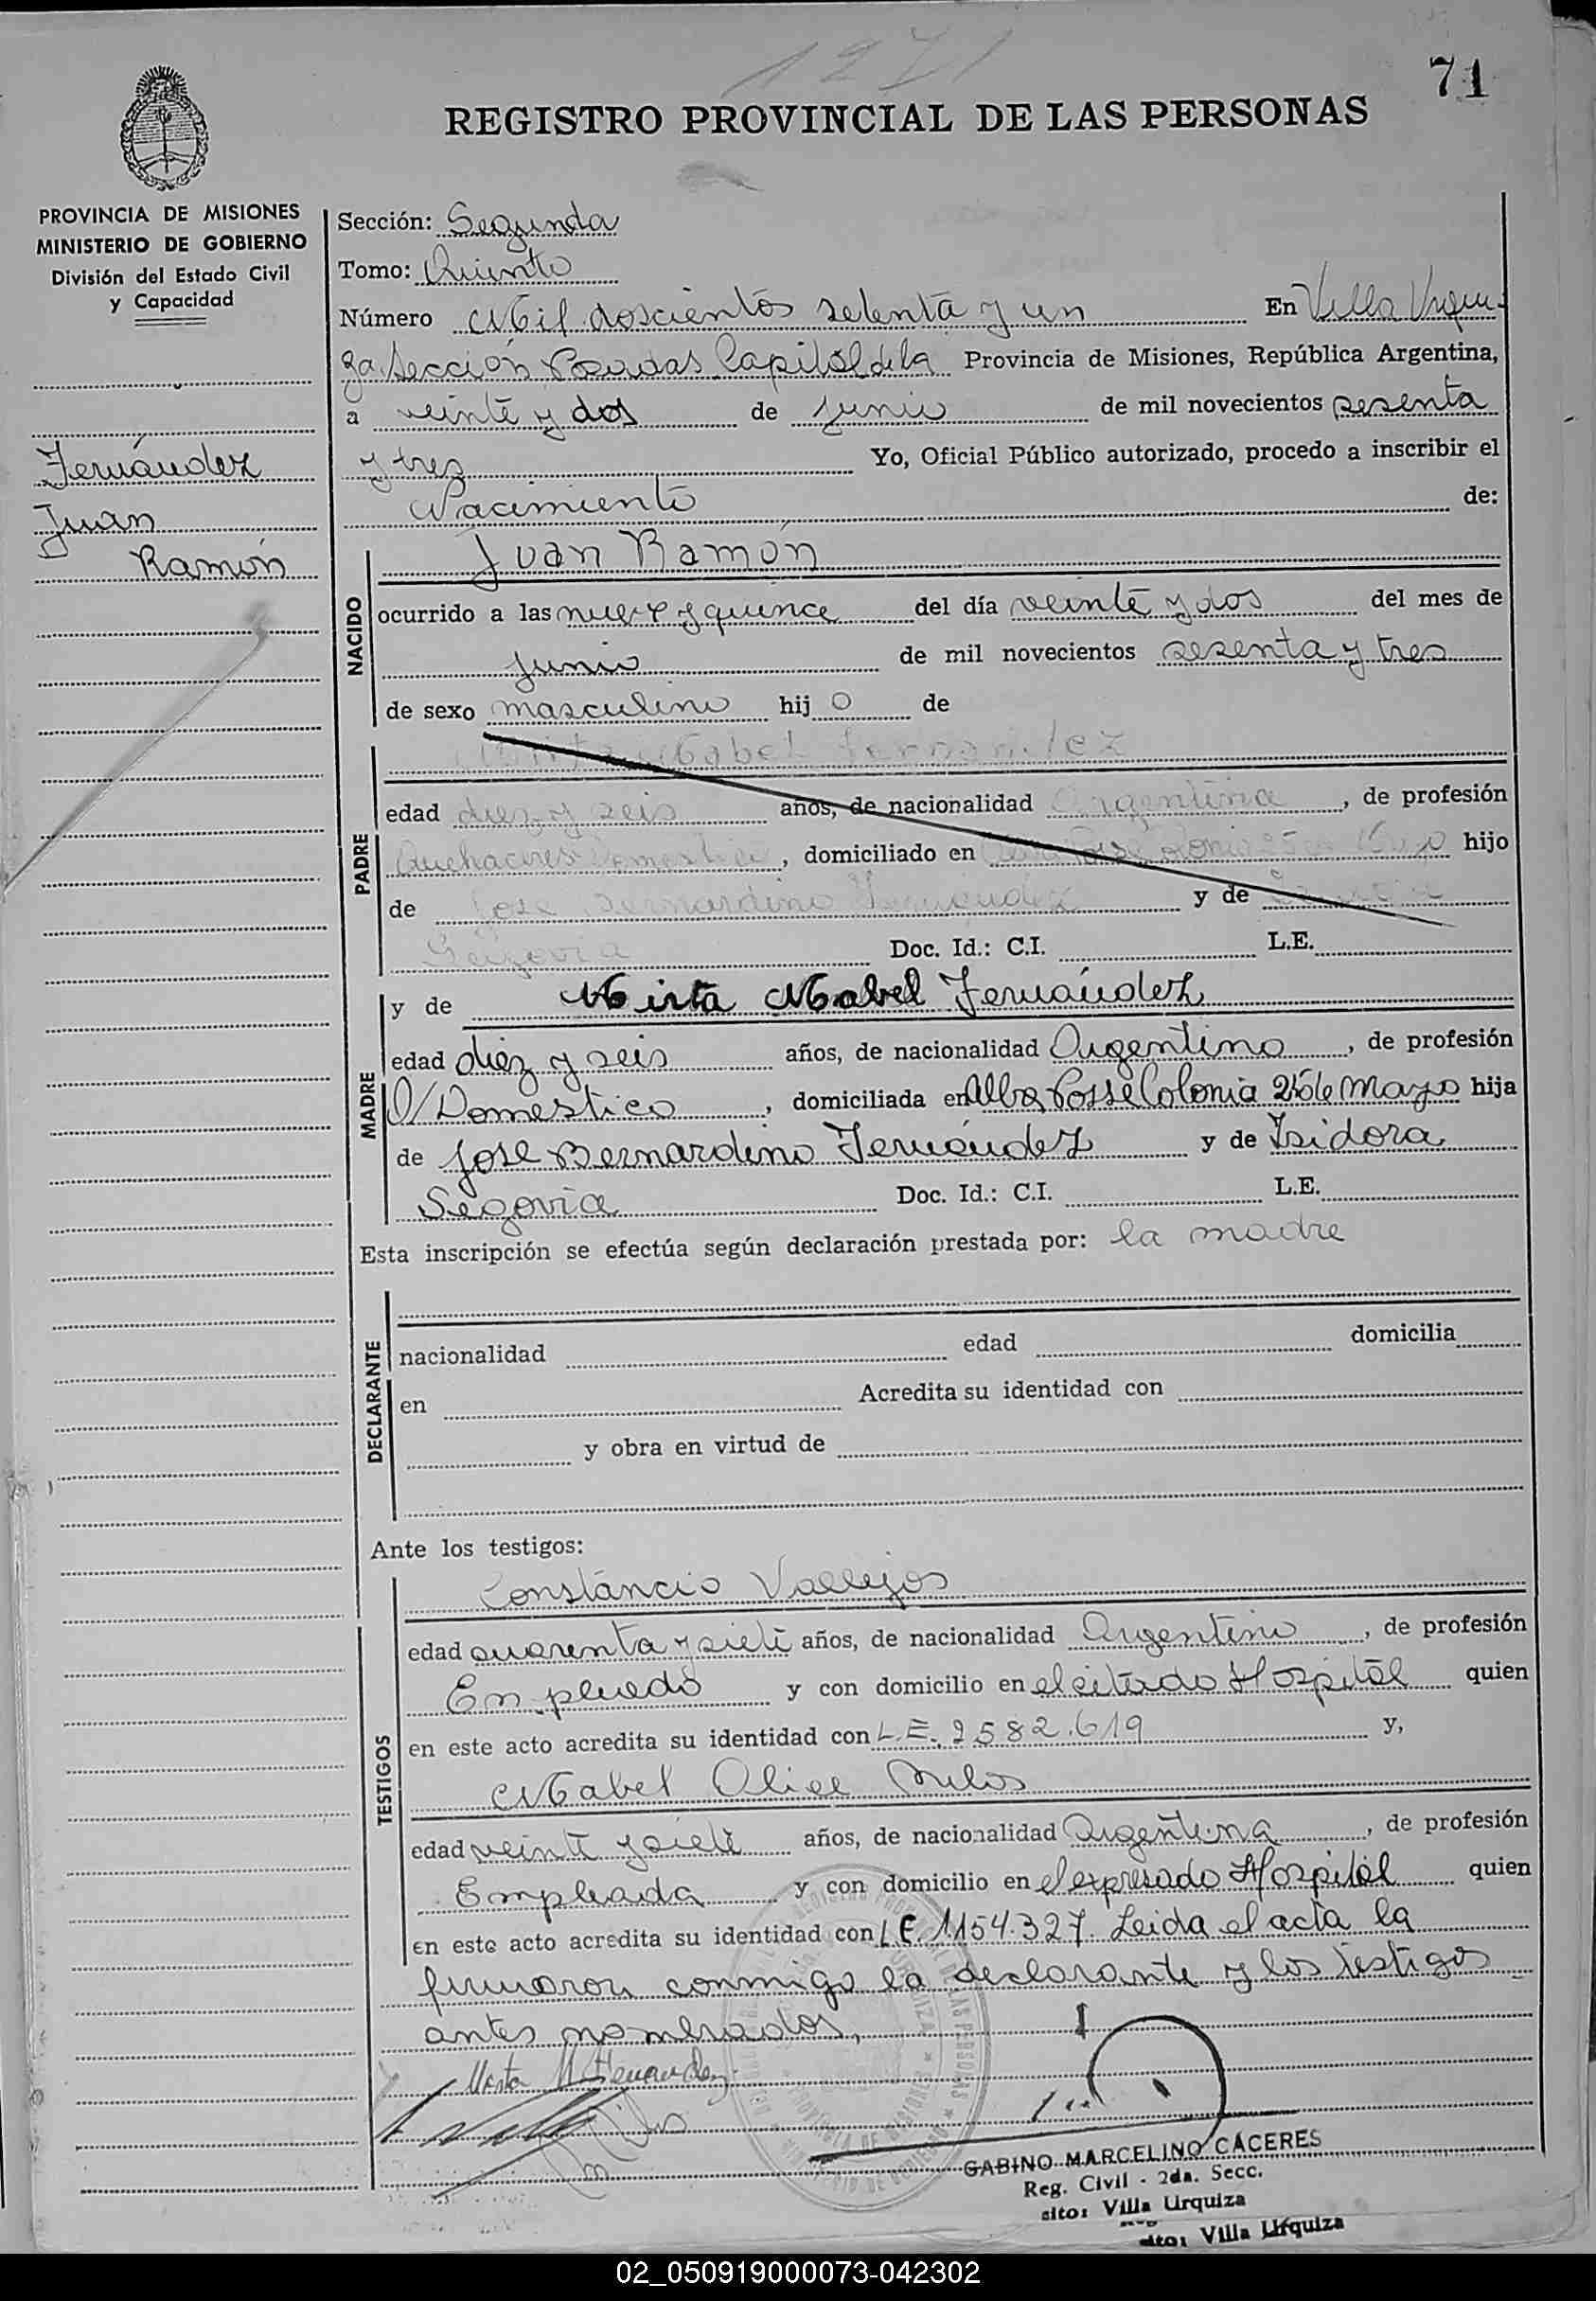 1271
71
REGISTRO PROVINCIAL DE LAS PERSONAS
PROVINCIA DE MISIONES
MINISTERIO DE GOBIERNO
División del Estado Civil
y Capacidad
Fernández
Juan
Ramón
Sección: Segunda
Tomo: Quinto
Número Mil doscientos setenta y un En Villa Urqui-
za Sección Posadas Capital de la Provincia de Misiones, República Argentina,
a veinte y dos de Junio de mil novecientos sesenta
y tres Yo, Oficial Público autorizado, procedo a inscribir el
Nacimiento de:
NACIDO
Juan Ramón
ocurrido a las nueve y quince del día veinte y dos del mes de
Junio de mil novecientos sesenta y tres
de sexo masculino hij o de
PADRE
Mirta Mabel Fernandez
edad diez y seis años, de nacionalidad Argentina, de profesión
Quehaceres Domestico, domiciliado en hijo
de Jose Bernardino Fernández y de
Segovia Doc. Id.: C.I. L.E.
MADRE
y de Mirta Mabel Fernández
edad diez y seis años, de nacionalidad Argentina, de profesión
Q/Domestico, domiciliada en Alba Posse Colonia 25 de Mayo hija
de Jose Bernardino Fernández y de Isidora
Segovia Doc. Id.: C.I. L.E.
Esta inscripción se efectúa según declaración prestada por: la madre
DECLARANTE
nacionalidad edad domicilia
en Acredita su identidad con
y obra en virtud de
Ante los testigos:
TESTIGOS
Constancio Vallejos
edad cuarenta y siete años, de nacionalidad Argentino, de profesión
Empleado y con domicilio en el citado Hospital quien
en este acto acredita su identidad con L.E. 2582.619 y,
Mabel Alice
edad veinte y siete años, de nacionalidad Argentina, de profesión
Empleada y con domicilio en el expresado Hospital quien
en este acto acredita su identidad con L.E. 1154.327. Leida el acta la
firmaron conmigo la declarante y los testigos
antes nombrados,
Mirta M Fernandez
GABINO MARCELINO CÁCERES
Reg. Civil - 2da. Secc.
sito: Villa Urquiza
sito: Villa Urquiza
02_050919000073-042302